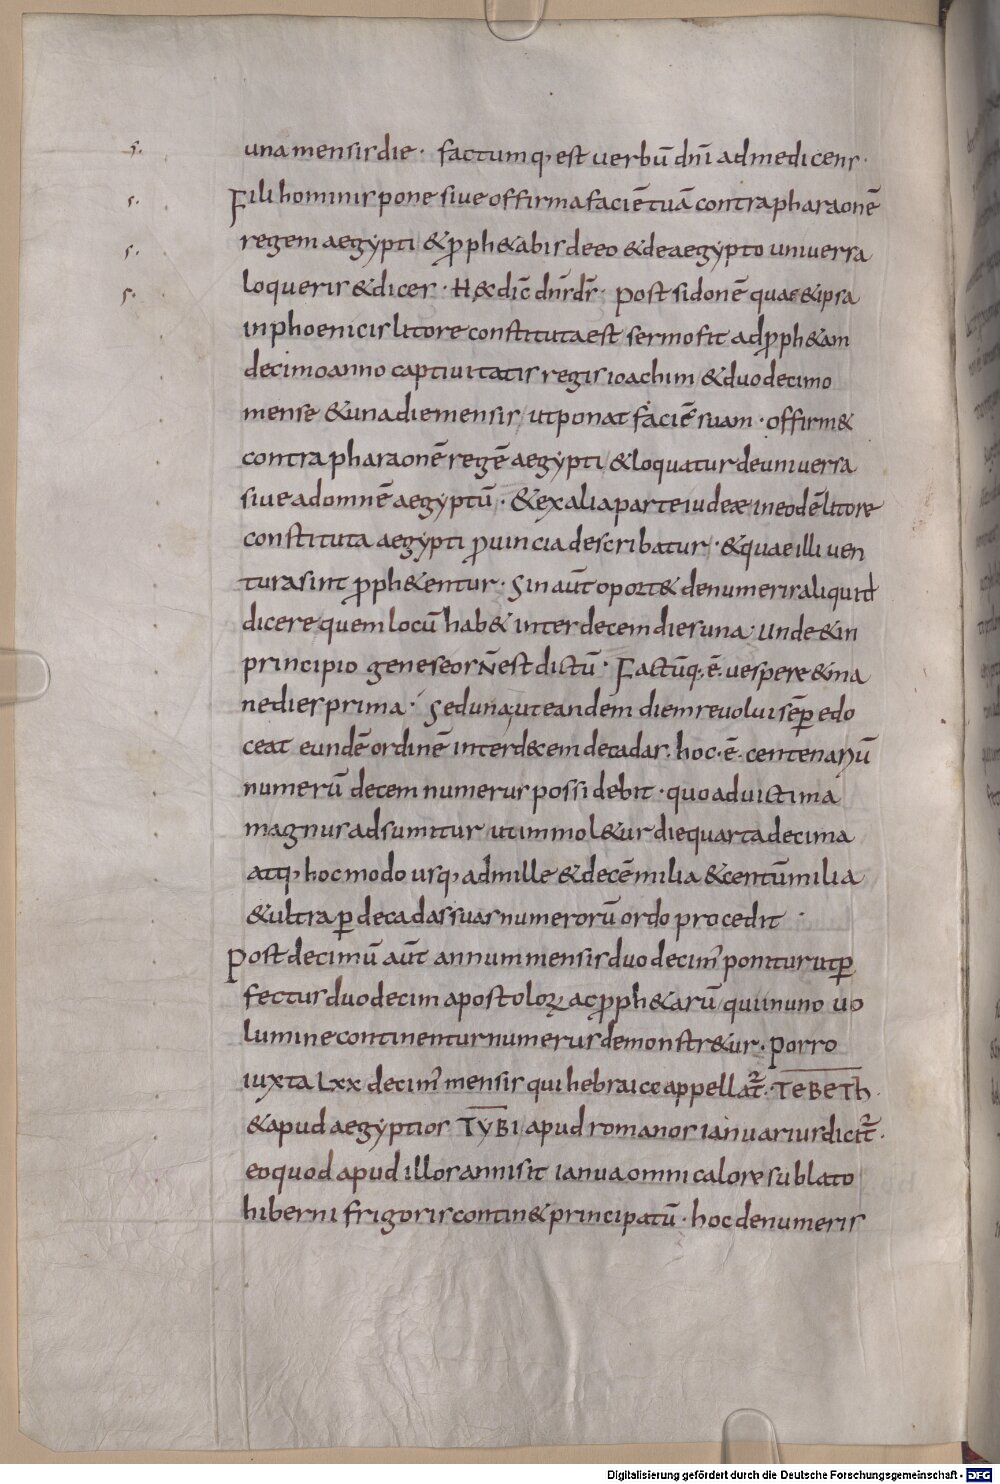 una mensis die · factumq; est uerbū dnī ad me dicens ·
Fili hominis pone siue offirma faciē tuā contra pharaonē
regem aegypti & p̄ph&abis de eo & de aegypto uniuersa
loqueris & dices · H& dic̄ dn̄s ds̄ · post sidonē quae & ipsa
in phoenicis litore constituta est sermo fit ad p̄ph&am
decimo anno captiuitatis regis ioachim & duodecimo
mense & una die mensis / ut ponat faciē suam · offirm&
contra pharaonē regē aegypti / & loquatur de uniuersa
siue ad omnē aegyptū · & ex alia parte iudeæ in eodē litore
constituta aegypti p̄uincia describatur · & quae illi uen
tura sint p̄ph&entur · Sin aūt oport& de numeris aliquid
dicere quem locū hab& inter decem dies una · Unde & in
principio geneseos N̄ est dictū · Factūq; ē· uespere & ma
ne dies prima · Sed una, ut eandem diem reuolui sēp edo
ceat eundē ordinē inter decem decadas · hoc · ē · centenariū
numerū decem numerus possidebit · quo ad uictima
magnus adsumitur ut immol&ur die quarta decima
atq; hoc modo usq; ad mille & decē milia & centū milia
& ultra ꝑ decadas suas numerorū ordo procedit ·
Post decimū aūt annum mensis duodecim' ponitur ut ꝑ
fectus duodecim apostoloꝝ ac p̄ph&arū qui in uno uo
lumine continentur numerus demonstr&ur · Porro
iuxta Lxx decim' mensis qui hebraice appellat̄ · TEBETh ·
& apud aegyptios TYBI apud romanos ianuarius dicit̄ ·
eo quod apud illos anni sit ianua omni calore sublato
hiberni frigoris contin& principatū · hoc de numeris
s.
s.
s.
s.
Digitalisierung gefördert durch die Deutsche Forschungsgemeinschaft - DFG